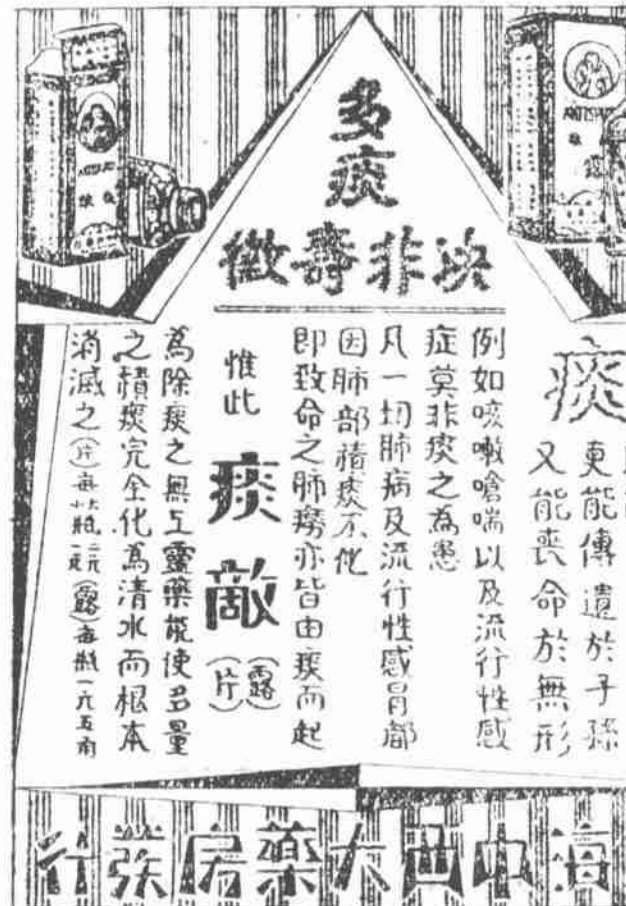 多痰
決非壽徵
痰
更能傳遺於子孫
又能喪命於無形
例如咳嗽嗆喘以及流行性感
症莫非痰之為患
凡一切肺病及流行性感冒都
因肺部積痰不化
即致命之肺癆亦皆由痰而起
惟此
痰敵
(露)
(片)
為除痰之無上靈藥能使多量
之積痰完全化為清水而根本
消滅之(片)每大瓶二元(露)每瓶一元五角
海中西大藥房發行